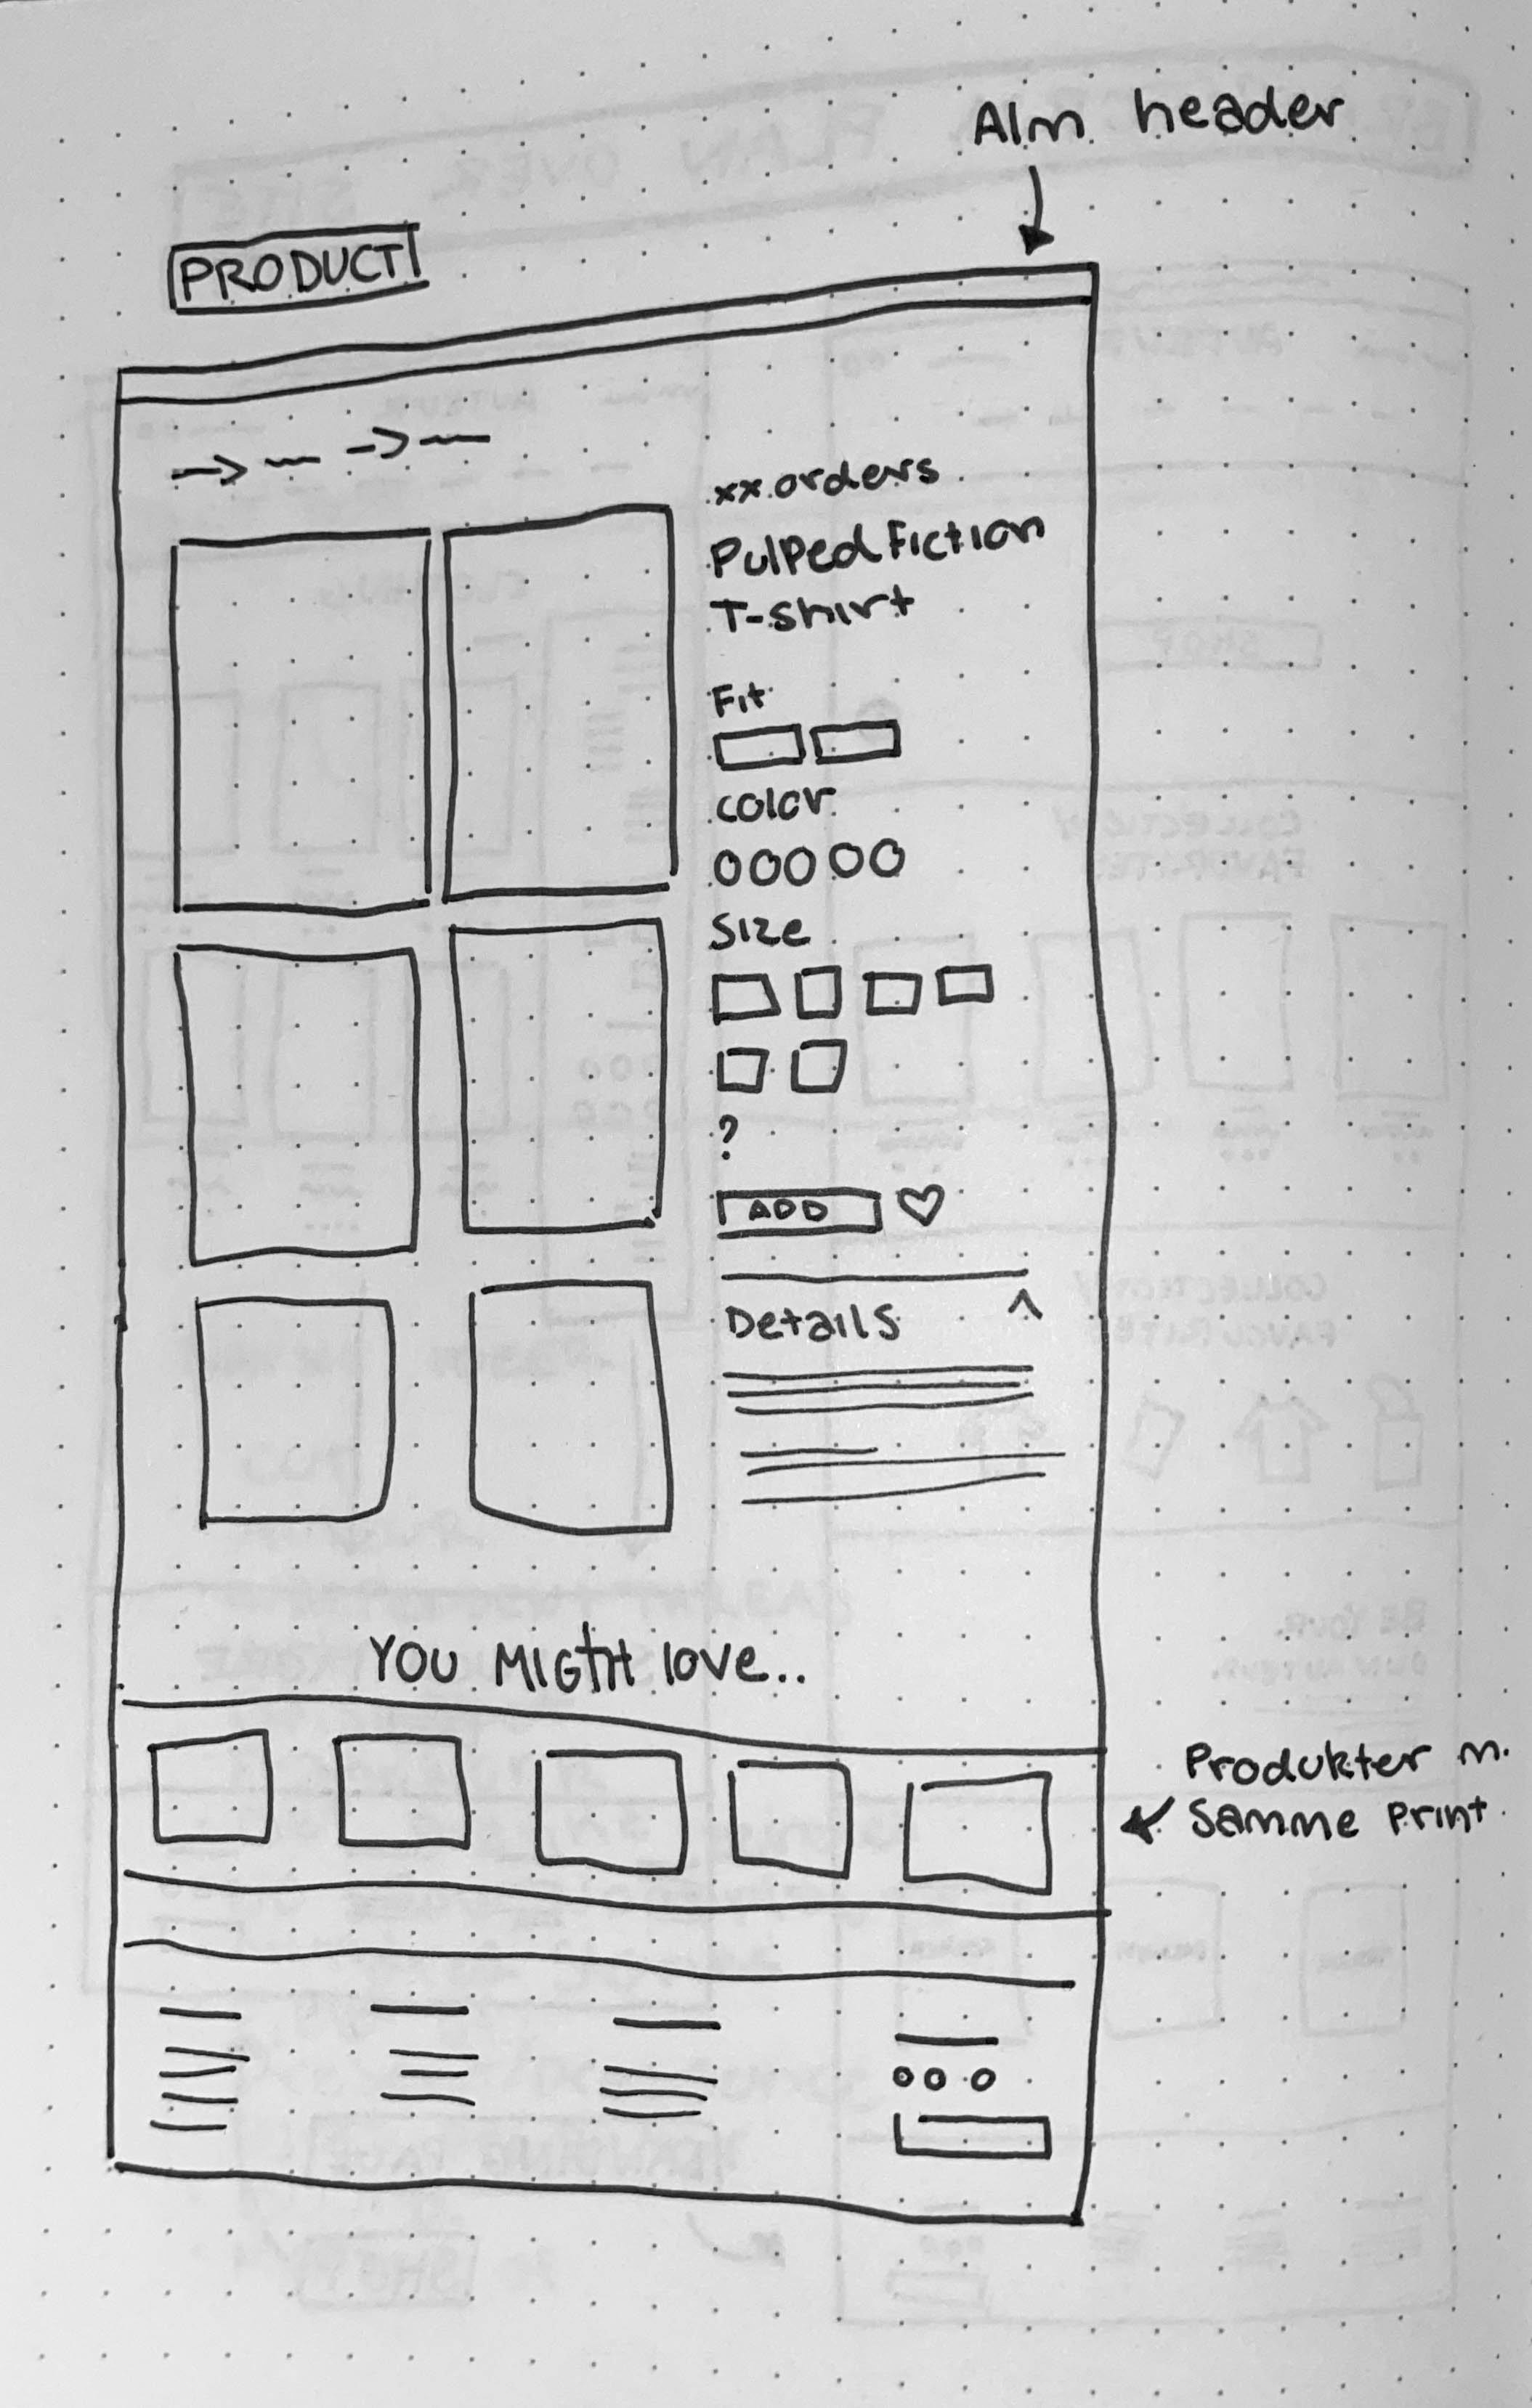 Alm. header
PRODUCT
xx orders
Pulped Fiction
T-shirt
Fit
Color
Size
?
ADD
Details
YOU MIGTH love..
Produkter m.
Samme print